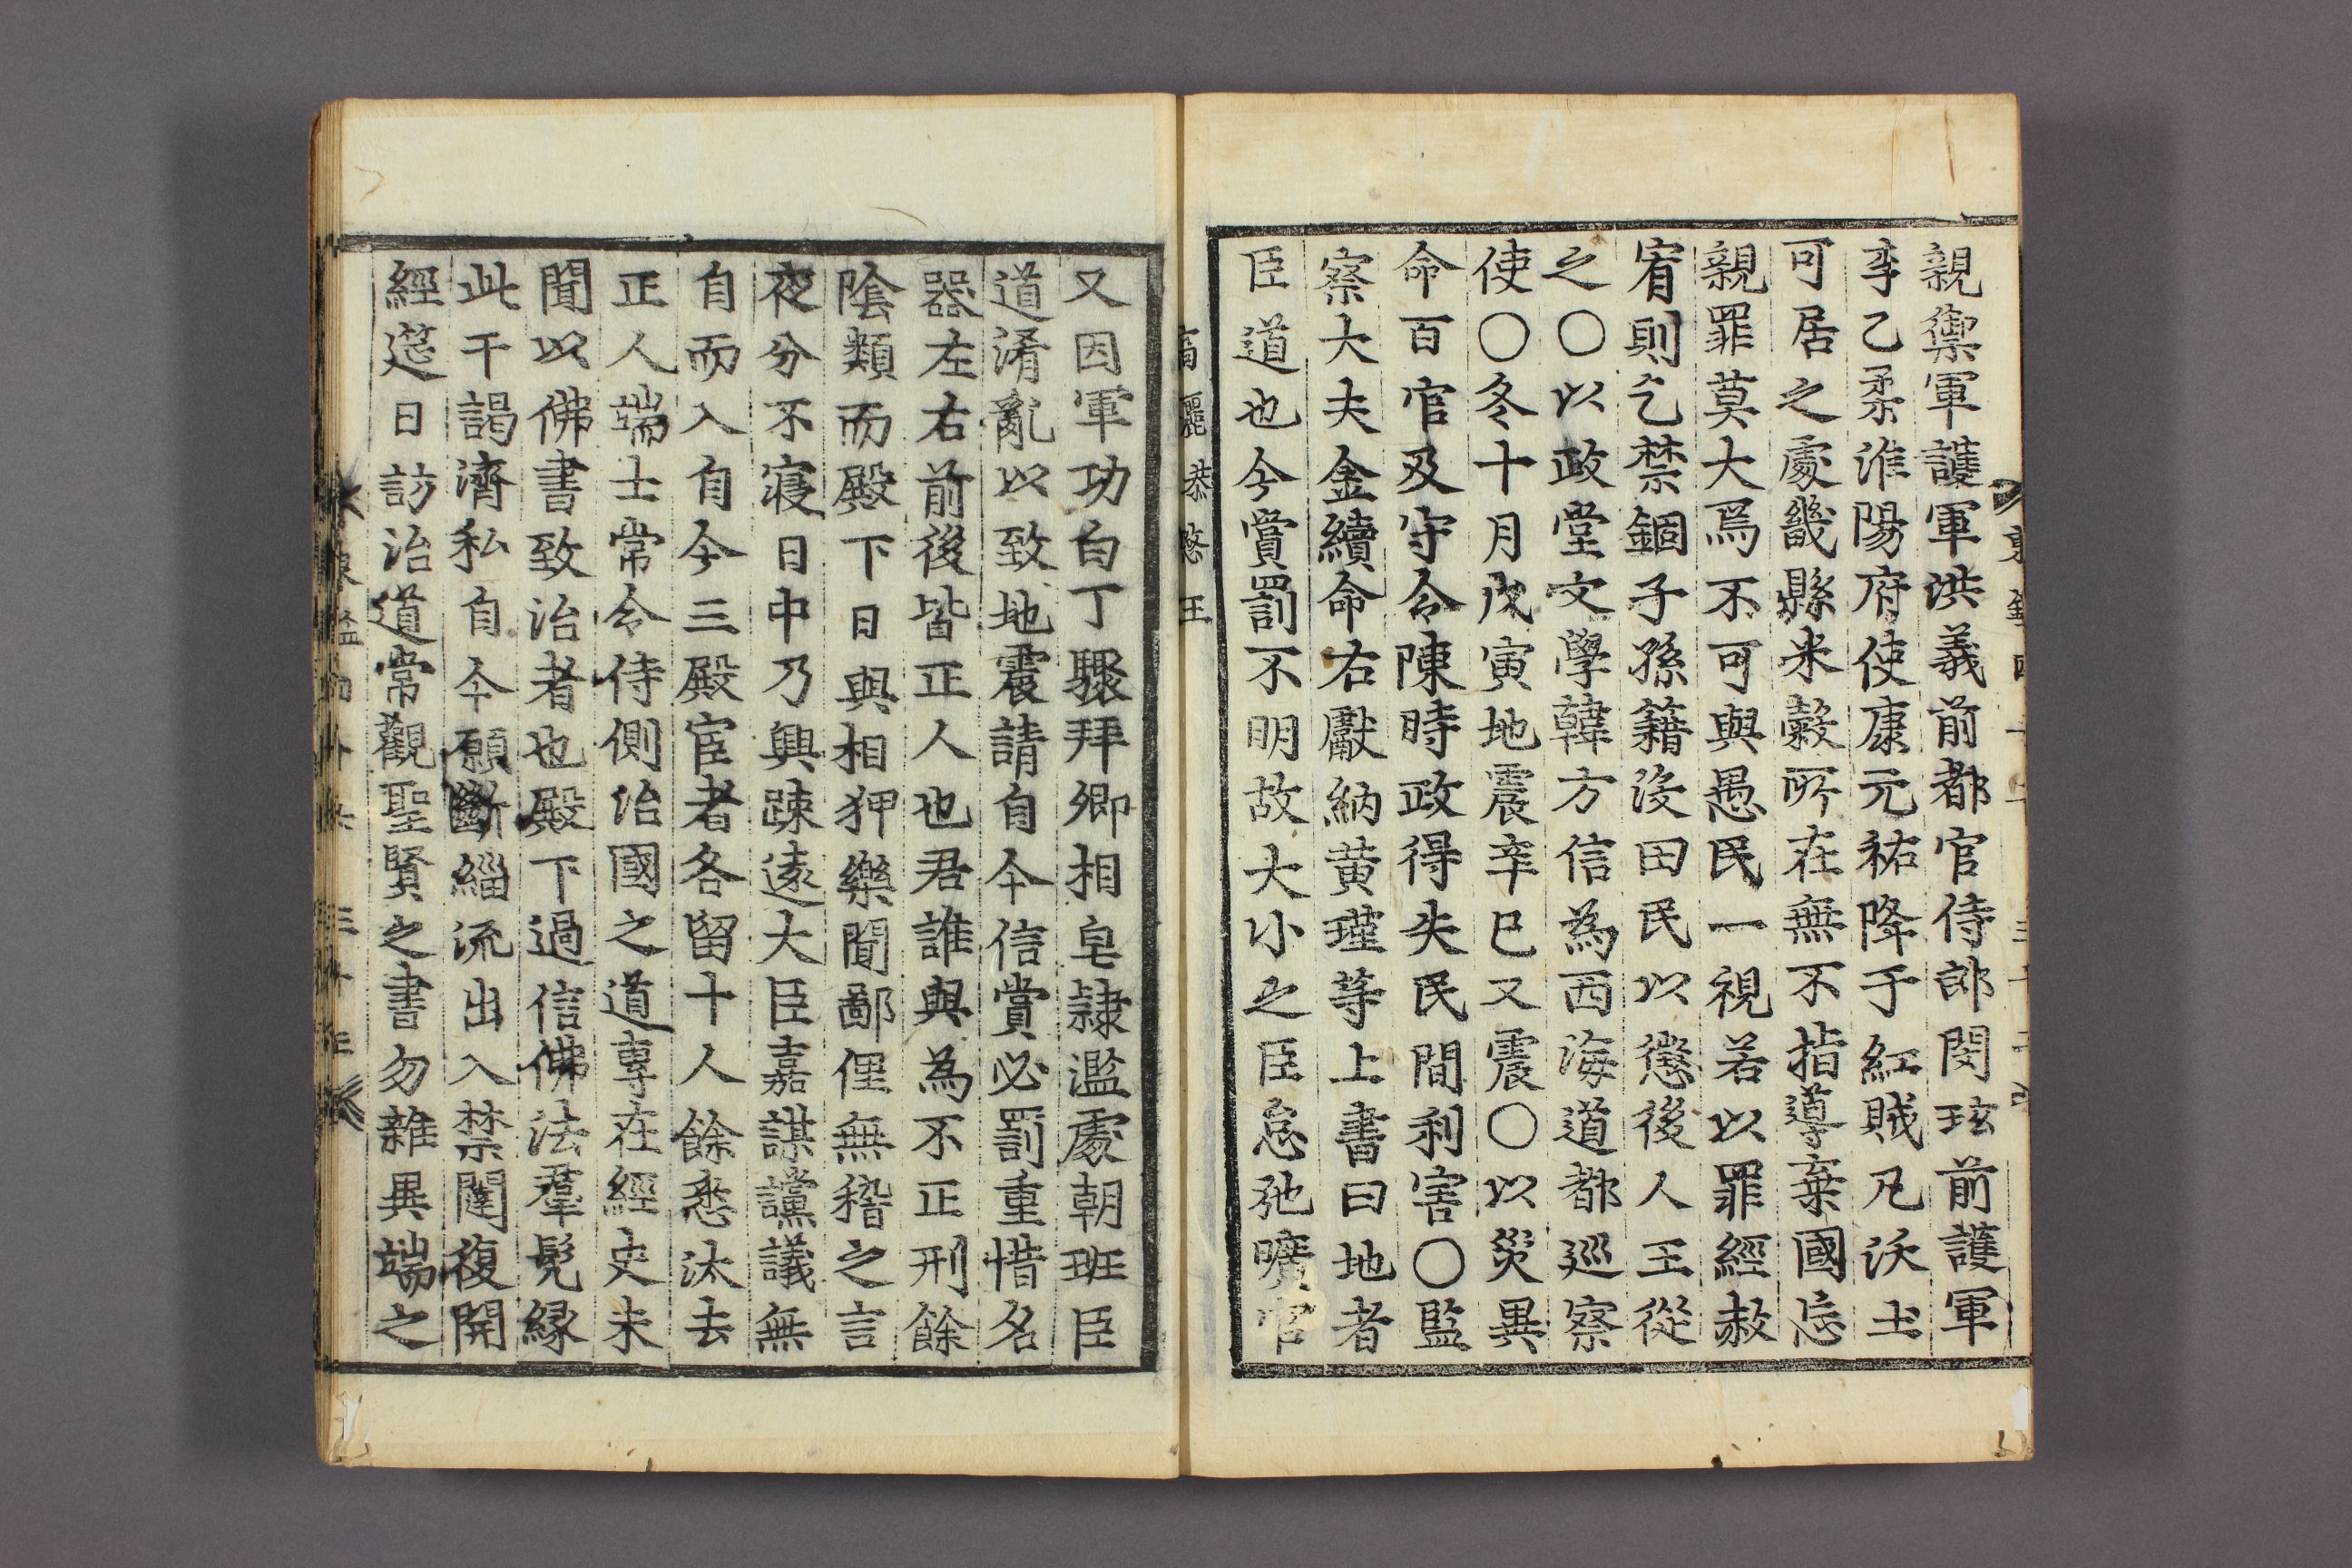 親禦軍護軍洪義前都官侍郎閔玹前護軍
李乙柔淮陽府使康元祐降于紅賊凡沃土
可居之處畿縣米穀所在無不指導棄國忘
親罪莫大焉不可與愚民一視若以罪經赦
宥則乞禁錮子孫籍沒田民以懲後人王從
之〇以政堂文學韓方信為西海道都巡察
使〇冬十月戊寅地震辛巳又震〇以災異
命百官及守令陳時政得失民間利害〇監
察大夫金續命右獻納黃瑾等上書曰地者
臣道也今賞罰不明故大小之臣怠弛曠官
高麗恭愍王
又因軍功白丁驟拜卿相皂隷濫處朝班臣
道淆亂以致地震請自今信賞必罰重惜名
器左右前後皆正人也君誰與為不正刑餘
陰類而殿下日與相狎樂聞鄙俚無稽之言
夜分不寢日中乃興踈遠大臣嘉謀讜議無
自而入自今三殿宦者各留十人餘悉汰去
正人端士常令侍側治國之道專在經史未
聞以佛書致治者也殿下過信佛法羣髡緣
此干謁濟私自今願斷緇流出入禁闥復開
經筵日訪治道常觀聖賢之書勿雜異端之